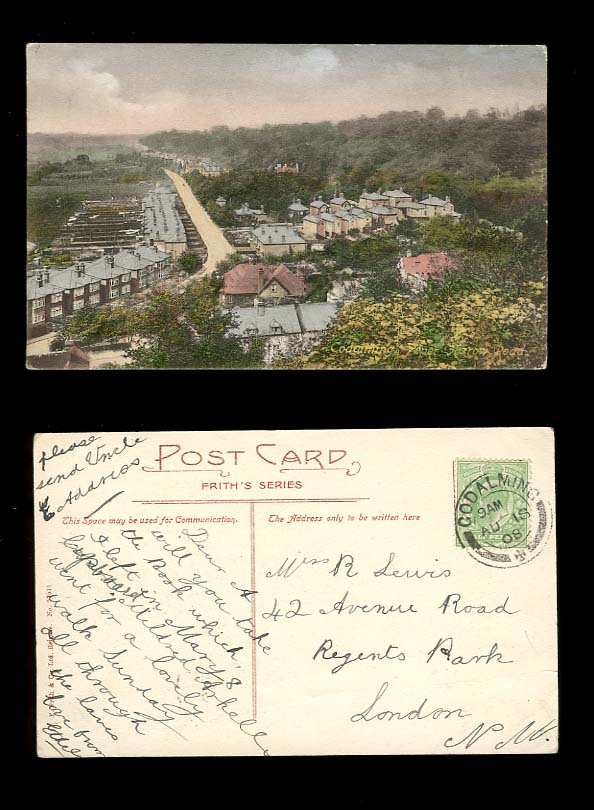 Godalming, Road
please
send Uncle
E Address
POST CARD
FRITH'S SERIES
This Space may be used for Communication.
The Address only to be written here
GODALMING
9 AM
08
Dear A
will you take
the book which
I left in Mary's
cupboard
to Mildred Arkell
went for a lovely
walk Sunday
all through
the lanes
love from
Ethel
Miss R Lewis
42 Avenue Road
Regents Park
London
N. W.
F. Frith & Co. Ltd., Reigate. No.